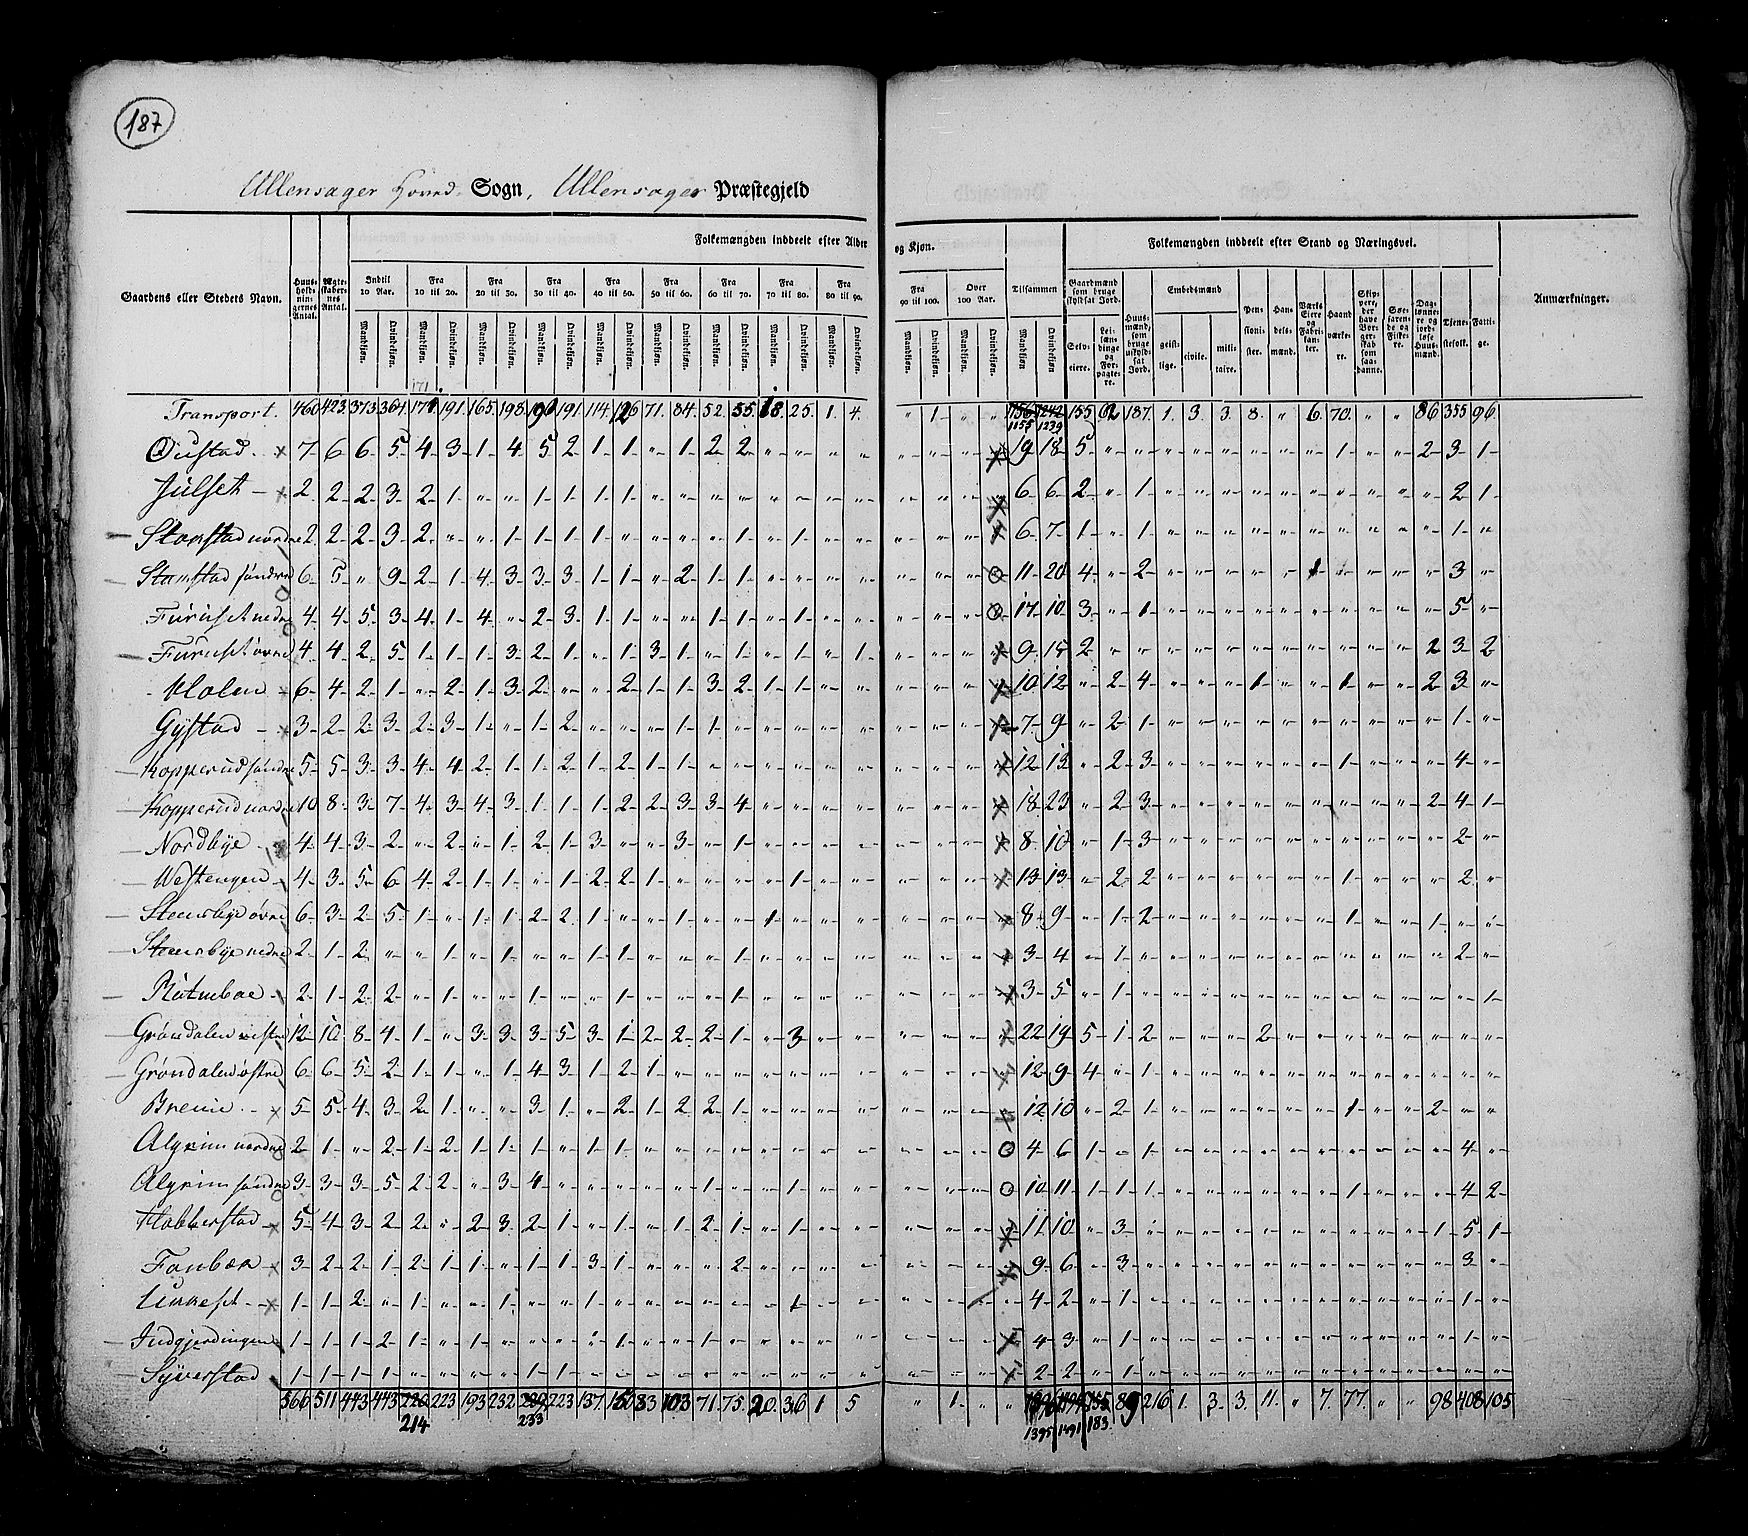 187
Ullensager Hoved Sogn, Ullensager Præstegjeld
Folkemængden inddeelt efter Alder og Kjøn.
Folkemængden inddeelt efter Stand og Næringsvei.
Gaardens eller Stedets Navn.
Huusholdningernes Antal.
Ægteskabernes Antal.
Indtil 10 Aar.
Fra 10 til 20.
Fra 20 til 30.
Fra 30 til 40.
Fra 40 til 50.
Fra 50 til 60.
Fra 60 til 70.
Fra 70 til 80.
Fra 80 til 90.
Fra 90 til 100.
Over 100 Aar.
Tilsammen
Mandkjøn. Qvindekjøn.
Gaardmænd som bruge skyldsat Jord.
Selveiere.
Leilændinge og Forpagtere.
Huusmænd, som bruge uskyldsat Jord.
Embedsmænd
geistlige. civile. militaire.
Pensionister.
Handelsmænd.
Værks Eiere og Fabrikanter.
Haandværkere.
Skippere, der have Borgerskab som saadanne.
Søefarende og Fiskere.
Daglønnere og jordløse Huusmænd.
Tjenestefolk.
Fattige.
Anmærkninger.
Transport. 460 423 373 364 171 191 165 198 196 191 114 126 71 84 52 55 18 25 1 4 " 1 " " 1155 1239 155 62 187 1 3 3 8 " 6 70 " " 86 355 96
Øustad 7 6 6 5 4 3 1 4 5 2 1 1 " 1 2 2 " " " " " " " " 19 18 5 " " " " " " " " 1 " " 2 3 1
Julset 2 2 2 3 2 1 " " 1 1 1 1 " " " " " " " " " " " " 6 6 2 " 1 " " " " " " " " " " 2 1
nordre 2 2 2 3 2 " " 1 1 1 1 " " " " 1 " 1 " " " " " " 6 7 1 " 1 " " " " " " " " " " 1 "
søndre 6 5 " 9 2 1 4 3 3 3 1 1 " 2 1 1 " " " " " " " " 11 20 4 " 2 " " " " " 1 " " " " 3 "
Furuset nedre 4 4 5 3 4 1 4 " 2 3 1 1 " " 1 1 " 1 " " " " " " 17 10 3 " 1 " " " " " " " " " " 5 "
Furuset øvre 4 4 2 5 1 1 1 3 2 1 " 1 3 1 " 1 " 1 " 1 " " " " 9 15 2 " " " " " " " " " " " 2 3 2
Holen 6 4 2 1 " 2 1 3 2 " " 2 1 1 3 2 1 1 " " " " " " 10 12 " 2 4 " " " 1 " " 1 " " 2 3 "
Gystad 3 2 2 3 2 3 1 " 1 2 " " " 1 1 " " " " " " " " " 7 9 " 2 1 " " " " " " " " " " 1 "
Kopperud søndre 5 5 3 3 4 4 2 1 1 2 1 2 1 1 " " " " " " " " " " 12 13 " 2 3 " " " " " " 1 " " " 4 "
Kopperud nordre 10 8 3 7 4 3 4 3 1 1 1 2 2 3 3 4 " " " " " " " " 18 23 " 2 3 " " " " " " " " " 2 4 1
Nordbye 4 4 3 2 " 2 " 1 2 1 3 " " 3 " 1 " " " " " " " " 8 10 " 1 3 " " " " " " " " " " 2 "
Westengen 4 3 5 6 4 2 1 1 " 1 2 2 1 " " " " 1 " " " " " " 13 13 " 2 2 " " " " " " 1 " " " 2 "
Steensbye øvre 6 3 2 5 1 " 1 1 2 2 1 " " 1 " " 1 " " " " " " " 8 9 " 1 2 " " " " " " 1 " " 1 " "
Steensbye nedre 2 1 2 " " 1 " 1 " 1 1 1 " " " " " " " " " " " " 3 4 " 1 " " " " " " " " " " " 2 "
2 1 2 2 " 1 " " 1 " " 1 " " " 1 " " " " " " " " 3 5 " 1 " " " " " " " " " " " " 1
Grøndalen vestre 12 10 8 4 1 " 3 3 3 5 3 1 2 2 2 1 " 3 " " " " " " 22 19 5 1 2 " " " 2 " " " " " " " "
Grøndalen østre 6 6 5 2 1 1 " 1 4 3 1 2 1 " " " " " " " " " " " 12 9 4 " 1 " " " " " " " " " " " "
5 5 4 3 2 1 " " 3 1 " 2 1 2 2 1 " " " " " " " " 12 10 " 2 1 " " " " " " 1 " " 2 " "
Algrim nordre 2 1 " 2 1 2 1 1 1 " 1 1 " " " " " " " " " " " " 4 6 1 " 1 " " " " " " " " " " 4 "
Algrim søndre 3 3 3 5 2 2 " 3 4 " " " " " 1 " " 1 " " " " " " 10 11 1 1 1 " " " " " " 1 " " " 4 2
5 4 3 2 2 " 2 3 2 1 " 1 " 1 2 1 " 1 " " " " " " 11 10 " 3 " " " " " " " " " " 1 5 1
3 2 2 1 2 1 1 " 1 1 3 1 " " " 2 " " " " " " " " 9 6 " 3 " " " " " " " " " " " 3 "
1 1 2 " 1 " " 1 " " " " " " " " " 1 " " " " " " 4 2 " 1 " " " " " " " " " " " 1 "
Indgjerdingen 1 1 1 2 1 " " " " " " 1 " " 1 " " " " " " " " " 4 3 " 1 " " " " " " " " " " " 1 "
Syverstad 1 1 1 1 " " " " 1 1 " " " " " " " " " " " " " " 2 2 " 1 " " " " " " " " " " " " "
566 511 443 443 226 223 193 232 223 137 150 83 103 71 75 20 36 1 5 " 1 " " 89 216 1 3 3 11 " 7 77 " " 98 408 105
214 233 1395 1491 183